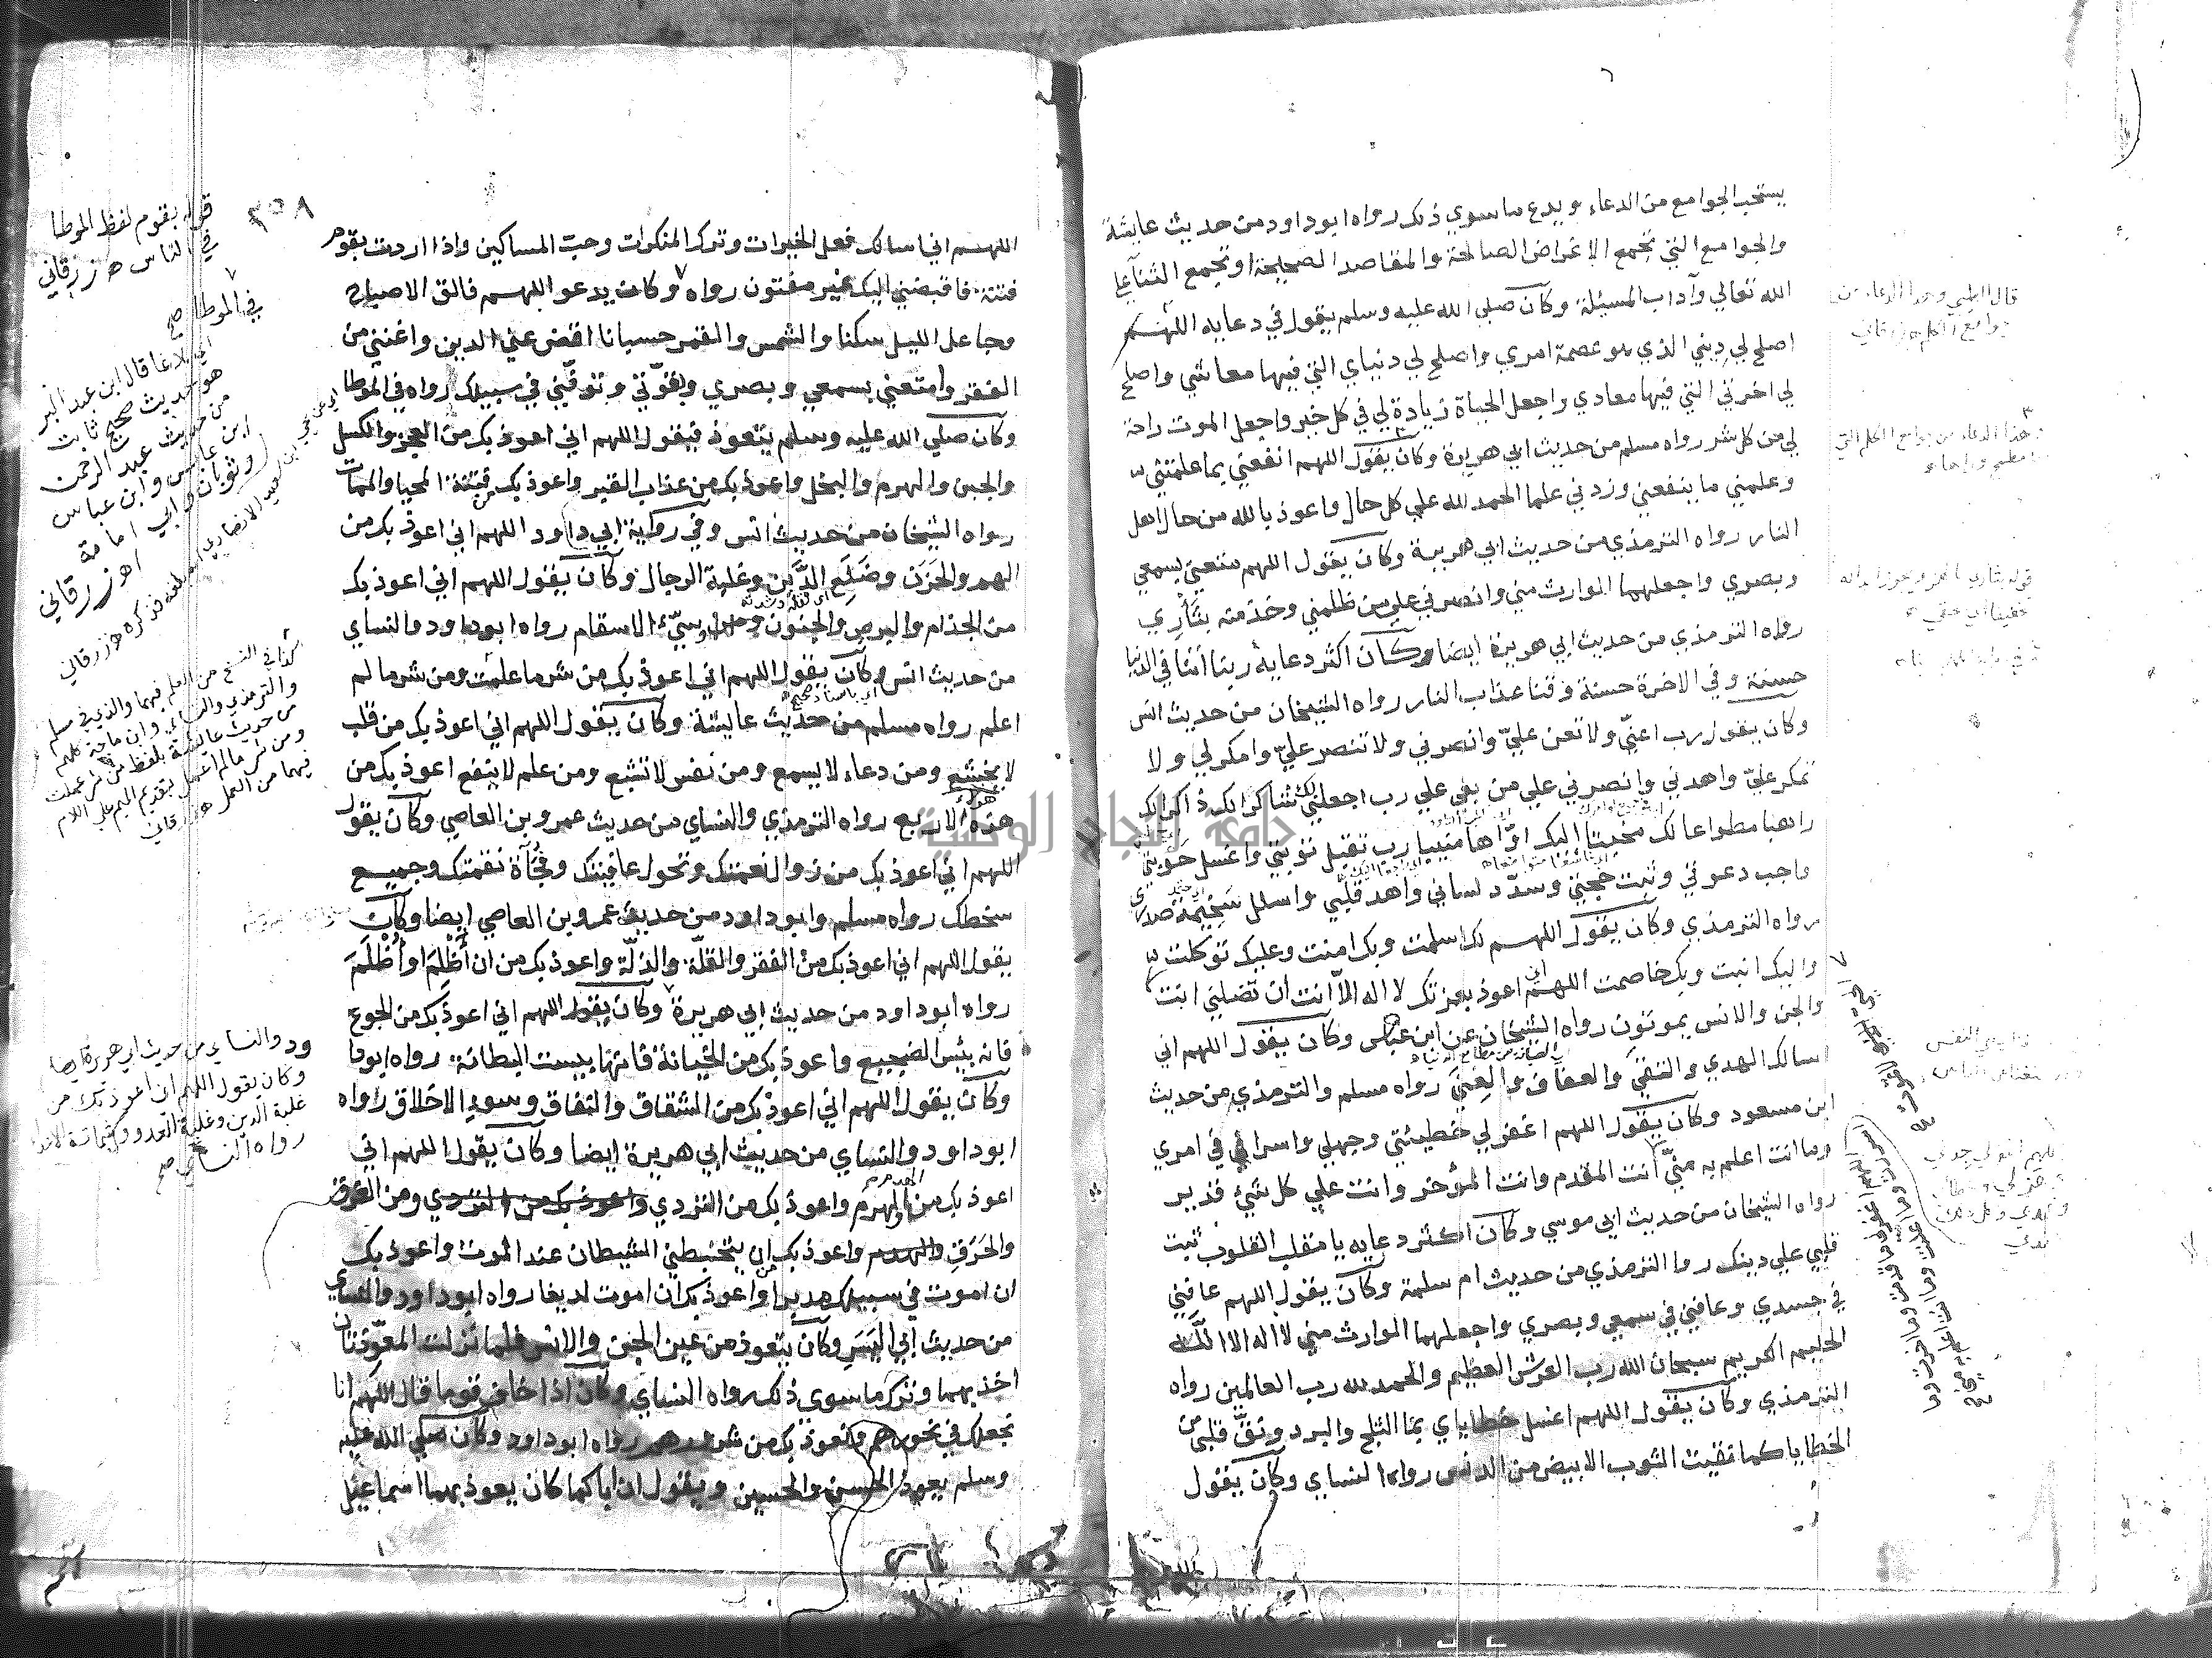 يستحب الجوامع من الدعاء ويدع ما سوي ذلك رواه ابوداود من حديث عايشة
والجوامع التي تجمع الاغراض الصالحة والمقاصد الصحيحة او تجمع الثناء علي
الله تعالي وآداب المسئلة وكان صلي الله عليه وسلم يقول في دعايه اللهم
اصلح لي ديني الذي هو عصمة امري واصلح لي دنياي التي فيها معاشي واصلح
لي اخرتي التي فيها معادي واجعل الحياة زيادة لي في كل خير واجعل الموت راحة
لي من كل شر رواه مسلم من حديث ابي هريرة وكان يقول اللهم انفعني بما علمتني
وعلمني ما ينفعني وزدني علما الحمد لله علي كل حال واعوذ بالله من حال اهل
النار رواه الترمذي من حديث ابي هريرة وكان يقول اللهم متعني بسمعي
وبصري واجعلهما الوارث مني وانصرني علي من ظلمني وخذ منه بثأري
رواه الترمذي من حديث ابي هريرة ايضا وكان اكثر دعايه ربنا آتنا في الدنيا
حسنة وفي الاخرة حسنة وقنا عذاب النار رواه الشيخان من حديث انس
وكان يقول رب اعنّي ولا تعن عليّ وانصرني ولا تنصر عليّ وامكر لي ولا
تمكر عليّ واهدني وانصرني علي من بغي علي رب اجعلني لك شاكرا لك ذاكرا لك
راهبا مطواعا لك مخبتا اليك اوّاها منيبا رب تقبل توبتي واغسل حوبتي
واجب دعوتي وثبت حجتي وسدد لساني واهد قلبي واسلل سخيمة صدري
رواه الترمذي وكان يقول اللهم لك اسلمت وبك امنت وعليك توكلت
واليك انبت وبك خاصمت اللهم اني اعوذ بعزتك لا اله الا انت ان تضلني انت
والجن والانس يموتون رواه الشيخان عن ابن عباس وكان يقول اللهم اني
اسالك الهدي والتقي والعفاف والغني رواه مسلم والترمذي من حديث
ابن مسعود وكان يقول اللهم اغفر لي خطيئتي وجهلي واسرافي في امري
وما انت اعلم به مني انت المقدم وانت المؤخر وانت علي كل شيئ قدير
رواه الشيخان من حديث ابي موسي وكان اكثر دعايه يا مقلب القلوب ثبت
قلبي علي دينك رواه الترمذي من حديث ام سلمة وكان يقول اللهم عافني
في جسدي وعافني في سمعي وبصري واجعلهما الوارث مني لا اله الا الله
الحليم الكريم سبحان الله رب العرش العظيم والحمد لله رب العالمين رواه
الترمذي وكان يقول اللهم اغسل خطاياي بما الثلج والبرد ونقّ قلبي من
الخطايا كما نقيت الثوب الابيض من الدنس رواه النساي وكان يقول
قال الطيبي وهذا الدعاء من
جوامع الكلم زرقاني
٢٥٨
اللهم اني اسالك فعل الخيرات وترك المنكرات وحب المساكين واذا اردت بقوم
فتنة فاقبضني اليك غير مفتون رواه وكان يدعو اللهم فالق الاصباح
وجاعل الليل سكنا والشمس والقمر حسبانا اقض عني الدين واغنني من
الفقر وامتعني بسمعي وبصري وقوّتي وتوفّني في سبيلك رواه في الموطا
وكان صلي الله عليه وسلم يتعوذ فيقول اللهم اني اعوذ بك من العجز والكسل
والجبن والهرم والبخل واعوذ بك من عذاب القبر واعوذ بك من فتنة المحيا والممات
رواه الشيخان من حديث انس وفي رواية ابي داود اللهم اني اعوذ بك من
الهم والحَزَن وضَلَع الدَّين وغلبة الرجال وكان يقول اللهم اني اعوذ بك
من الجذام والبرص والجنون ومن سيّء الاسقام رواه ابوداود والنساي
من حديث انس وكان يقول اللهم اني اعوذ بك من شر ما علمت ومن شر ما لم
اعلم رواه مسلم من حديث عايشة وكان يقول اللهم اني اعوذ بك من قلب
لا يخشع ومن دعاء لا يسمع ومن نفس لا تشبع ومن علم لا ينفع اعوذ بك من
هذه الاربع رواه الترمذي والنساي من حديث عمرو بن العاصي وكان يقول
اللهم اني اعوذ بك من زوال نعمتك وتحول عافيتك وفُجَآة نقمتك وجميع
سخطك رواه مسلم وابوداود من حديث عمرو بن العاصي ايضا وكان
يقول اللهم اني اعوذ بك من الفقر والقلّة والذلّة واعوذ بك من ان أَظْلِمَ او أُظْلَمَ
رواه ابوداود من حديث ابي هريرة وكان يقول اللهم اني اعوذ بك من الجوع
فانه بئس الضجيع واعوذ بك من الخيانة فانها بيست البطانة رواه ابودا
وكان يقول اللهم اني اعوذ بك من الشقاق والنفاق وسوء الاخلاق رواه
ابوداود والنساي من حديث ابي هريرة ايضا وكان يقول اللهم اني
اعوذ بك من الهرم واعوذ بك من التردي واعوذ بك من التردي ومن الغرق
والحَرَق والهدم واعوذ بك ان يتخبطني الشيطان عند الموت واعوذ بك
ان اموت في سبيلك مدبرا واعوذ بك من ان اموت لديغا رواه ابوداود والنساي
من حديث ابي اليَسَر وكان يتعوذ من عين الجن والانس فلما نزلت المعوّذتان
اخذ بهما وترك ما سوي ذلك رواه النساي وكان اذا خاف قوما قال اللهم انا
نجعلك في نحورهم ونعوذ بك من شرورهم رواه ابوداود وكان صلي الله عليه
وسلم يعوذ الحسن والحسين ويقول ان اباكما كان يعوذ بهما اسماعيل
قوله بقوم لفظ الموطا
في الناس هـ زرقاني
في الموطا صح
اي بلاغا قال ابن عبد البر
هو حديث صحيح ثابت
من حديث عبد الرحمن
ابن عايش وابن عباس
وثوبان وابي امامة
اهـ زرقاني
كذا في النسخ من العلم فيهما والذي في مسلم
والترمذي والنساي وابن ماجة كلهم
من حديث عائشة بلفظ من شر ما عملت
ومن شر ما لم اعمل بتقديم الميم علي اللام
فيهما من العمل هـ زرقاني
ود والنساي من حديث ابي هريرة ايضا
وكان يقول اللهم اني اعوذ بك من
غلبة الدين وغلبة العدو وشماتة الاعدا
رواه النساي صح
جامعة النجاح الوطنية